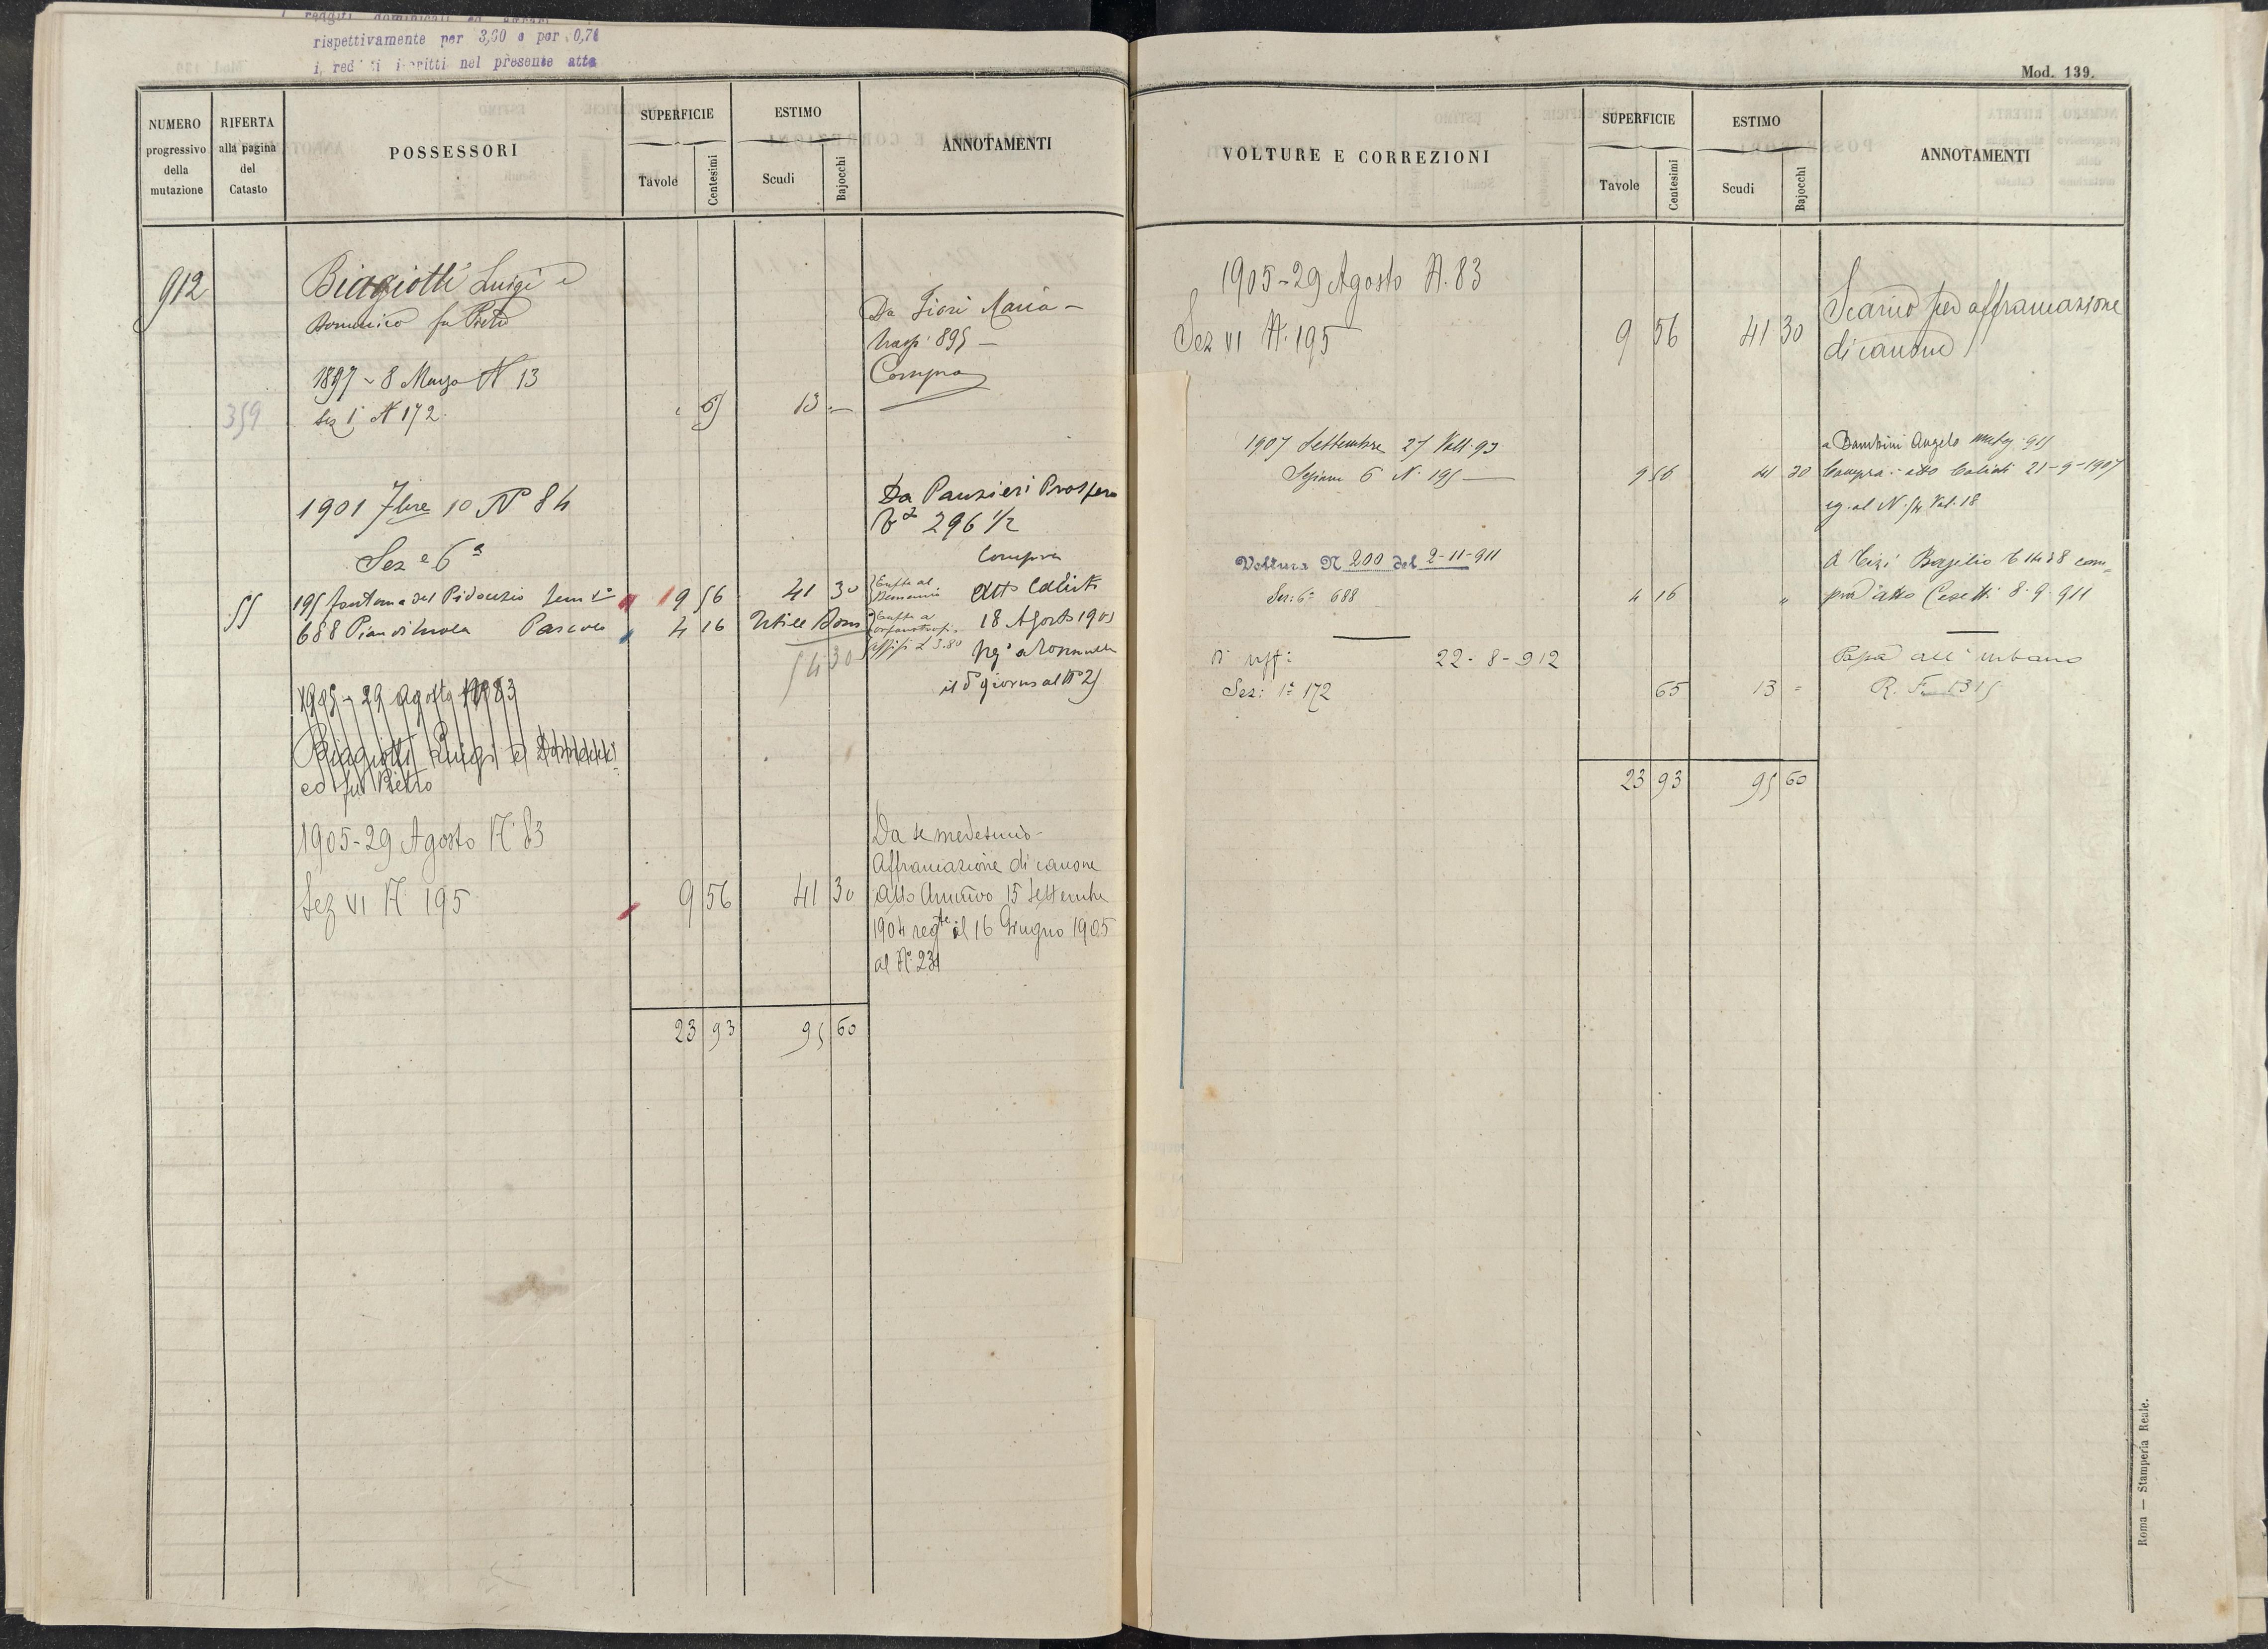 rispettivamente per 3,60 e per 0,70
i redditi iscritti nel presente atto
NUMERO progressivo della mutazione
RIFERTA alla pagina del Catasto
POSSESSORI
SUPERFICIE
Tavole
Centesimi
ESTIMO
Scudi
Bajocchi
ANNOTAMENTI
912
Biagiotti Luigi e
Domenico fu Pietro
Da Fiori Maria -
trasp. 895 -
1897 - 8 Marzo N 13
Compra
359 Sez 1 N 172. 65 13 -
1901 7bre 10 N° 84
Da Panzieri Prospero
296 1/2
Sez e 6ª
Compra
55 195 Fontana del Pidocchio 9 56 41 30 Enfta al Demanio Atto Caliciti
688 Pian di Pascolo 4 16 Utile Dom Enfta a 18 Agosto 1901
54 30 Assisi £ 3.80
il do giorno al N° 25
1905 - 29 Agosto N 83
Biagiotti Luigi e
fu Pietro
1905-29 Agosto N 83
Da se medesimo -
Affrancazione di canone
Sez VI N 195 9 56 41 30 Atto 15 Settembre
1904 regte il 16 Giugno 1905
al N. 231
23 93 95 60
Mod. 139.
VOLTURE E CORREZIONI
SUPERFICIE
Tavole
Centesimi
ESTIMO
Scudi
Bajocchi
ANNOTAMENTI
1905-29 Agosto N. 83
Sez VI N. 195 9 56 41 30 Scarico per affrancazione
di canone
1907 Settembre 27 Volt. 93
a Bambini Angelo
Sezione 6 N. 195 9 56 41 30 Compra: atto 21-9-1907
Vol. 18
Voltura N 200 del 2-11-911
Sez: 6ª 688 4 16 " pra atto Cesetti 8-9-911
22-8-912 Passa all'urbano
Sez: 1ª 172 65 13 = R. F. 1315
23 93 95 60
Roma — Stamperia Reale.